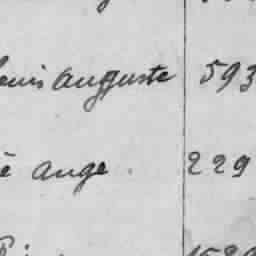 Louis Auguste 593
é Ange . 229